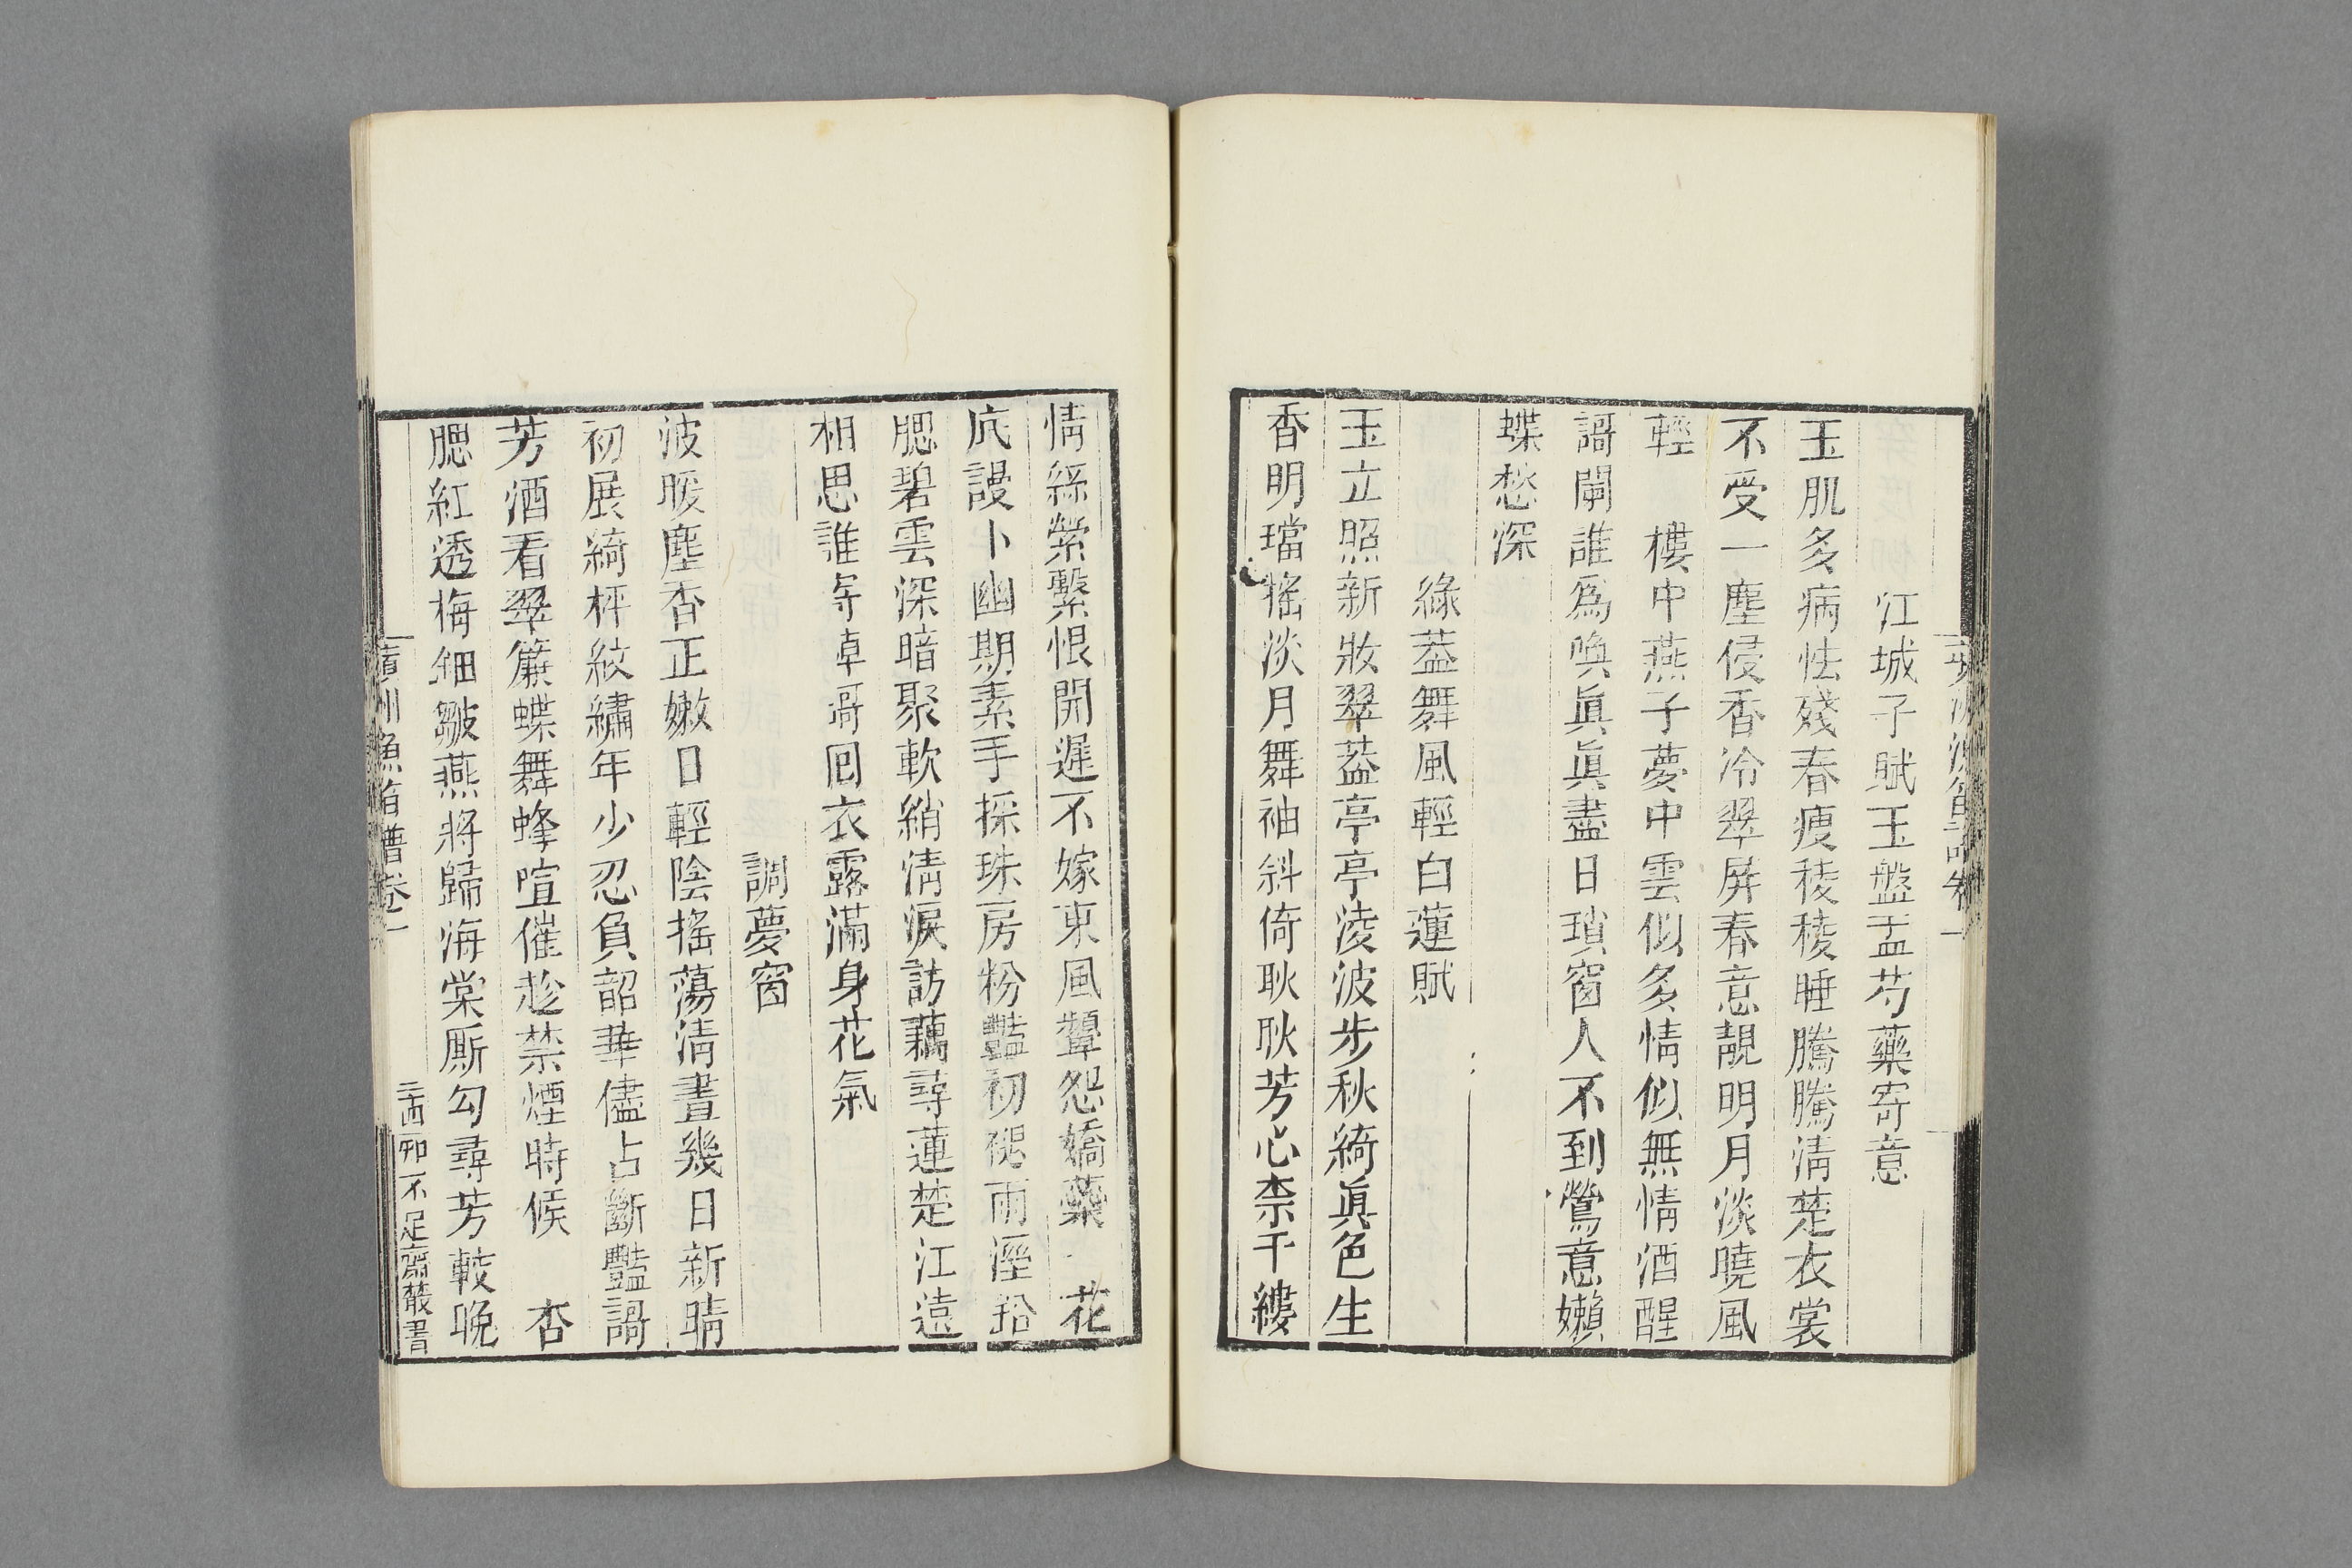 江城子賦玉盤盂芍藥寄意
玉肌多病怯殘春瘦稜稜睡騰騰清楚衣裳
不受一塵侵香冷翠屏春意靚明月淡曉風
輕　樓中燕子夢中雲似多情似無情酒醒
謌闌誰爲喚眞眞盡日瑣窗人不到鶯意嬾
蝶愁深
綠葢舞風輕白蓮賦
玉立照新妝翠葢亭亭淩波步秋綺眞色生
香明璫搖淡月舞袖斜倚耿耿芳心柰千縷
情絲縈繫恨開遲不嫁東風顰怨嬌蘂　花
底謾卜幽期素手採珠房粉豔初褪雨溼鉛
腮碧雲深暗聚軟綃清淚訪藕尋蓮楚江遠
相思誰寄棹謌囘衣露滿身花氣
調夢窗
波暖塵香正嫩日輕陰搖蕩清晝幾日新晴
初展綺枰紋繡年少忍負韶華儘占斷豔謌
芳酒看翠簾蝶舞蜂喧催趁禁煙時候　杏
腮紅透梅鈿皺燕將歸海棠厮勾尋芳較晚
蘋洲漁笛譜卷一
三　知不足齋叢書